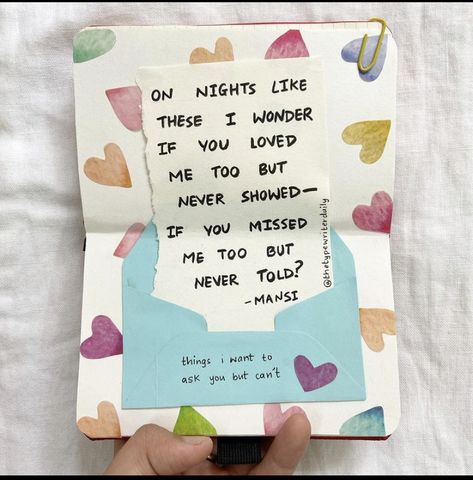 ON NIGHTS LIKE
THESE I WONDER
IF YOU LOVED
ME TOO BUT
NEVER SHOWED—
IF YOU MISSED
ME TOO BUT
NEVER TOLD?
-MANSI
@thetypewriterdaily
things i want to
ask you but can't